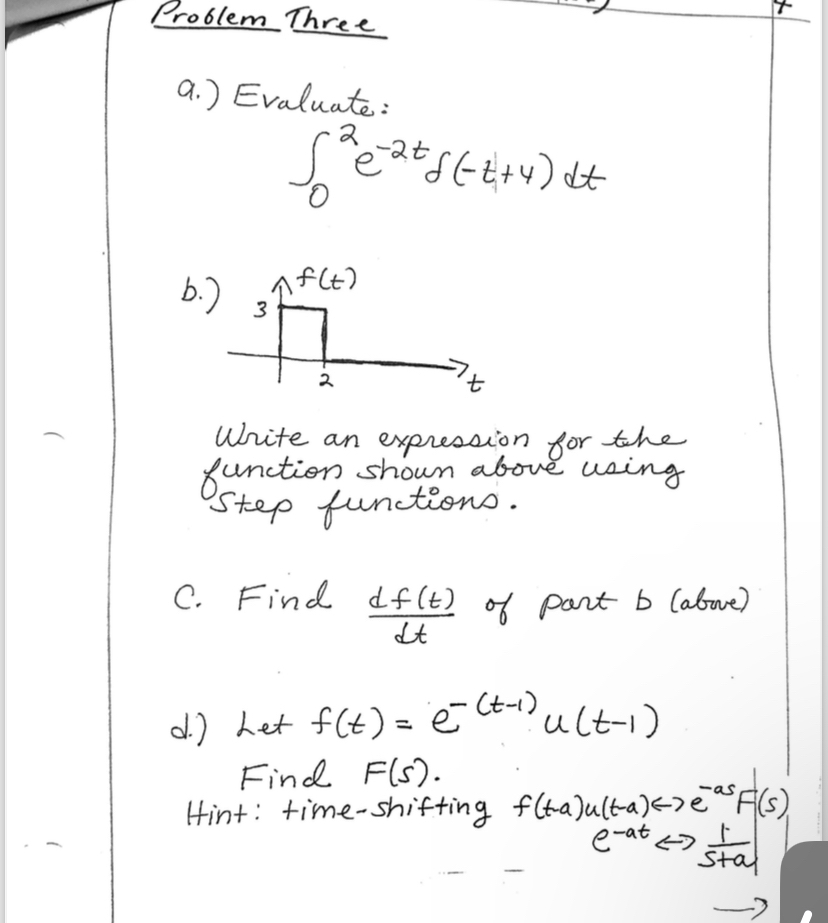 Problem Three
4
a.) Evaluate:
∫₀² e^-2t δ(-t+4) dt
b.) f(t)
3
2
t
Write an expression for the
function shown above using
Step functions.
C. Find df(t)/dt of part b (above)
d.) Let f(t) = e^-(t-1) u(t-1)
Find F(s).
Hint: time-shifting f(t-a)u(t-a)<->e^-as F(s)
e^-at <-> 1/s+a